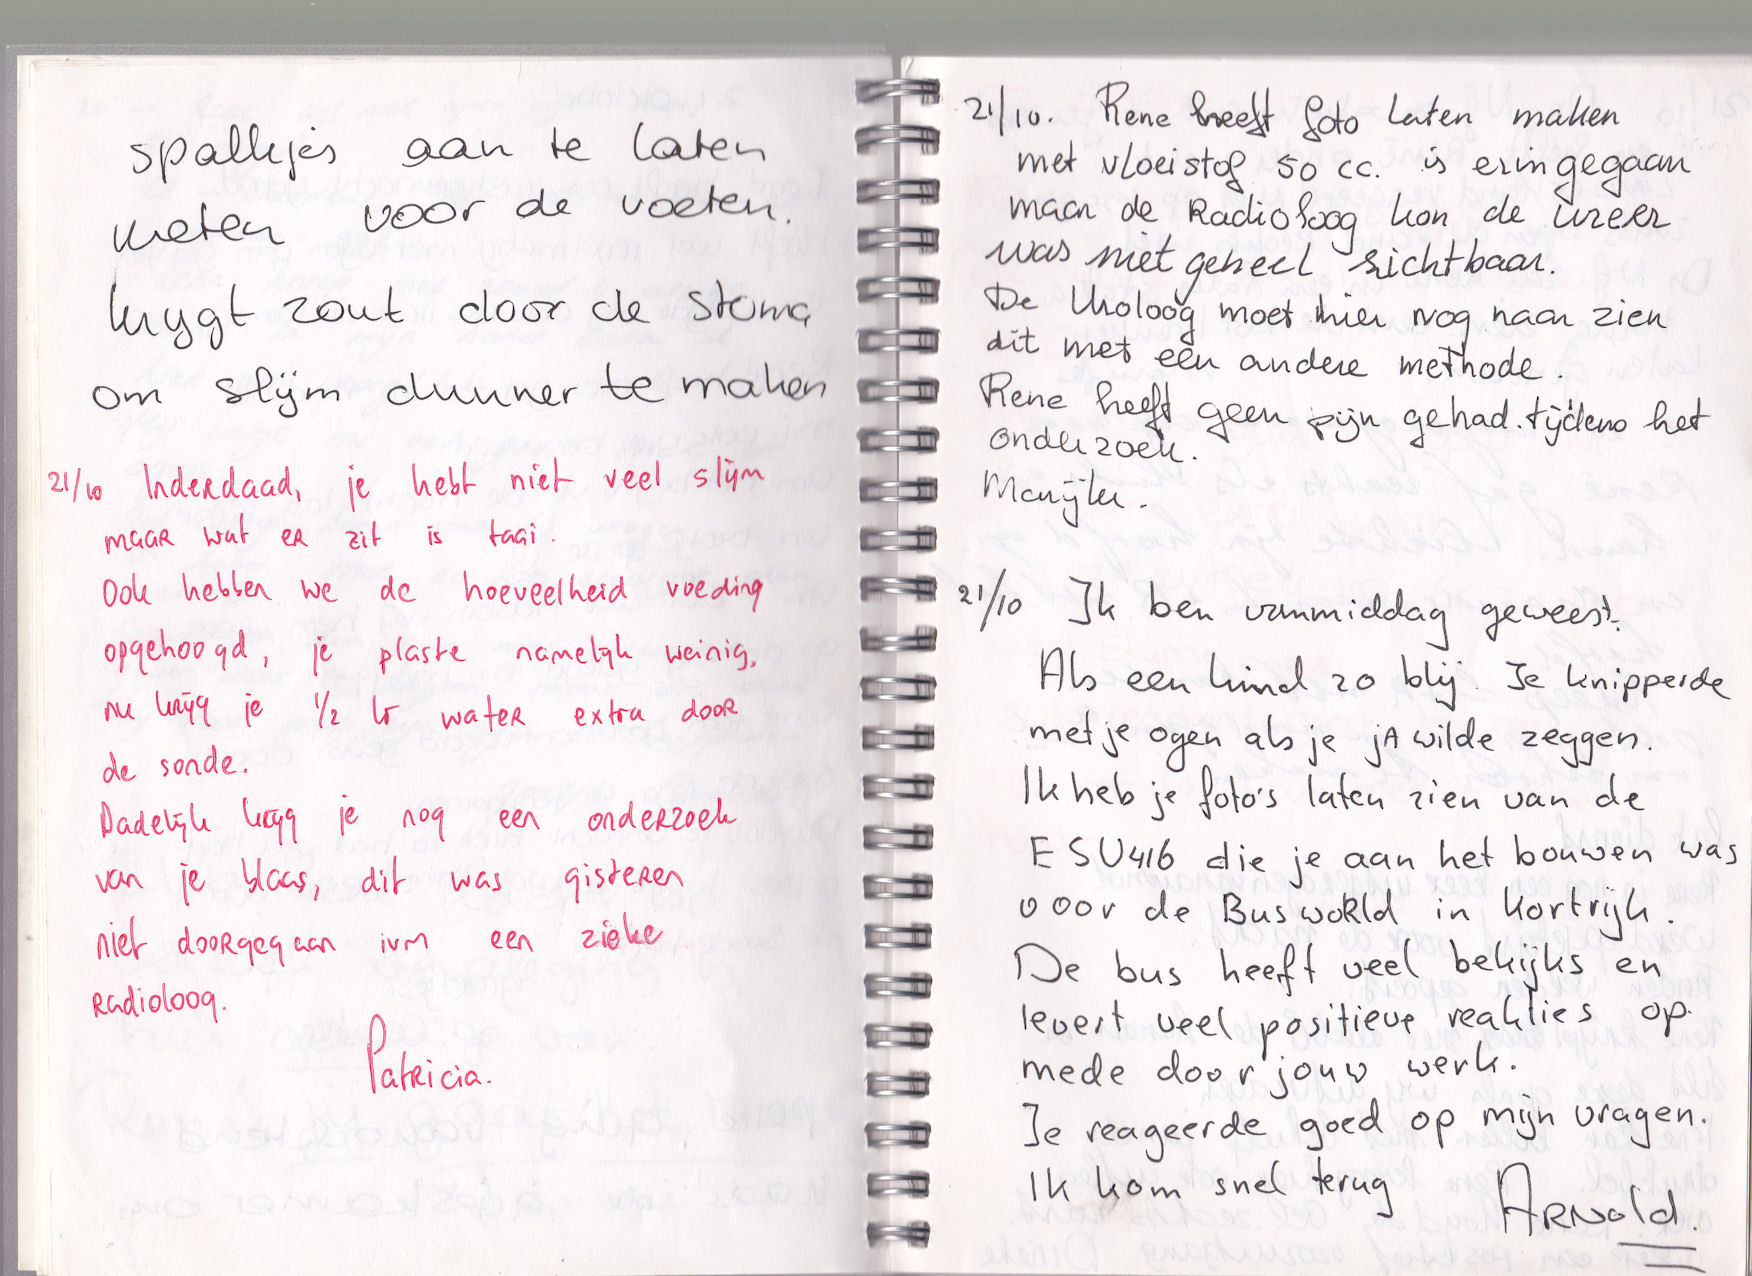 spalkjes aan te laten
meten voor de voeten.
krygt zout door de stoma
om slijm dunner te maken
21/10 Inderdaad, je hebt niet veel slijm
maar wat er zit is taai.
Ook hebben we de hoeveelheid voeding
opgehoogd, je plaste namelijk weinig,
nu krijg je 1/2 ltr water extra door
de sonde.
Dadelijk krijg je nog een onderzoek
van je blaas, dit was gisteren
niet doorgegaan ivm een zieke
radioloog.
Patricia.
21/10. Rene heeft foto laten maken
met vloeistof 50 cc. is eringegaan
maar de Radioloog kon de ureer
was niet geheel zichtbaar.
De Uroloog moet hier nog naar zien
dit met een andere methode.
Rene heeft geen pijn gehad. tijdens het
onderzoek.
Marijke.
21/10 Ik ben vanmiddag geweest.
Als een kind zo blij. Je knipperde
met je ogen als je jA wilde zeggen.
Ik heb je foto's laten zien van de
ESU416 die je aan het bouwen was
voor de Busworld in Kortrijk.
De bus heeft veel bekijks en
levert veel positieve reakties op.
mede door jouw werk.
Je reageerde goed op mijn vragen.
Ik kom snel terug
Arnold.